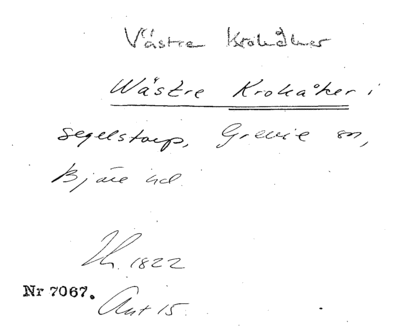 Västra Krokåker
Wästre Krokåker i
Segelstorp, Grevie sn,
Bjäre hd
Lh. 1822
Nr 7067.
Akt 15.